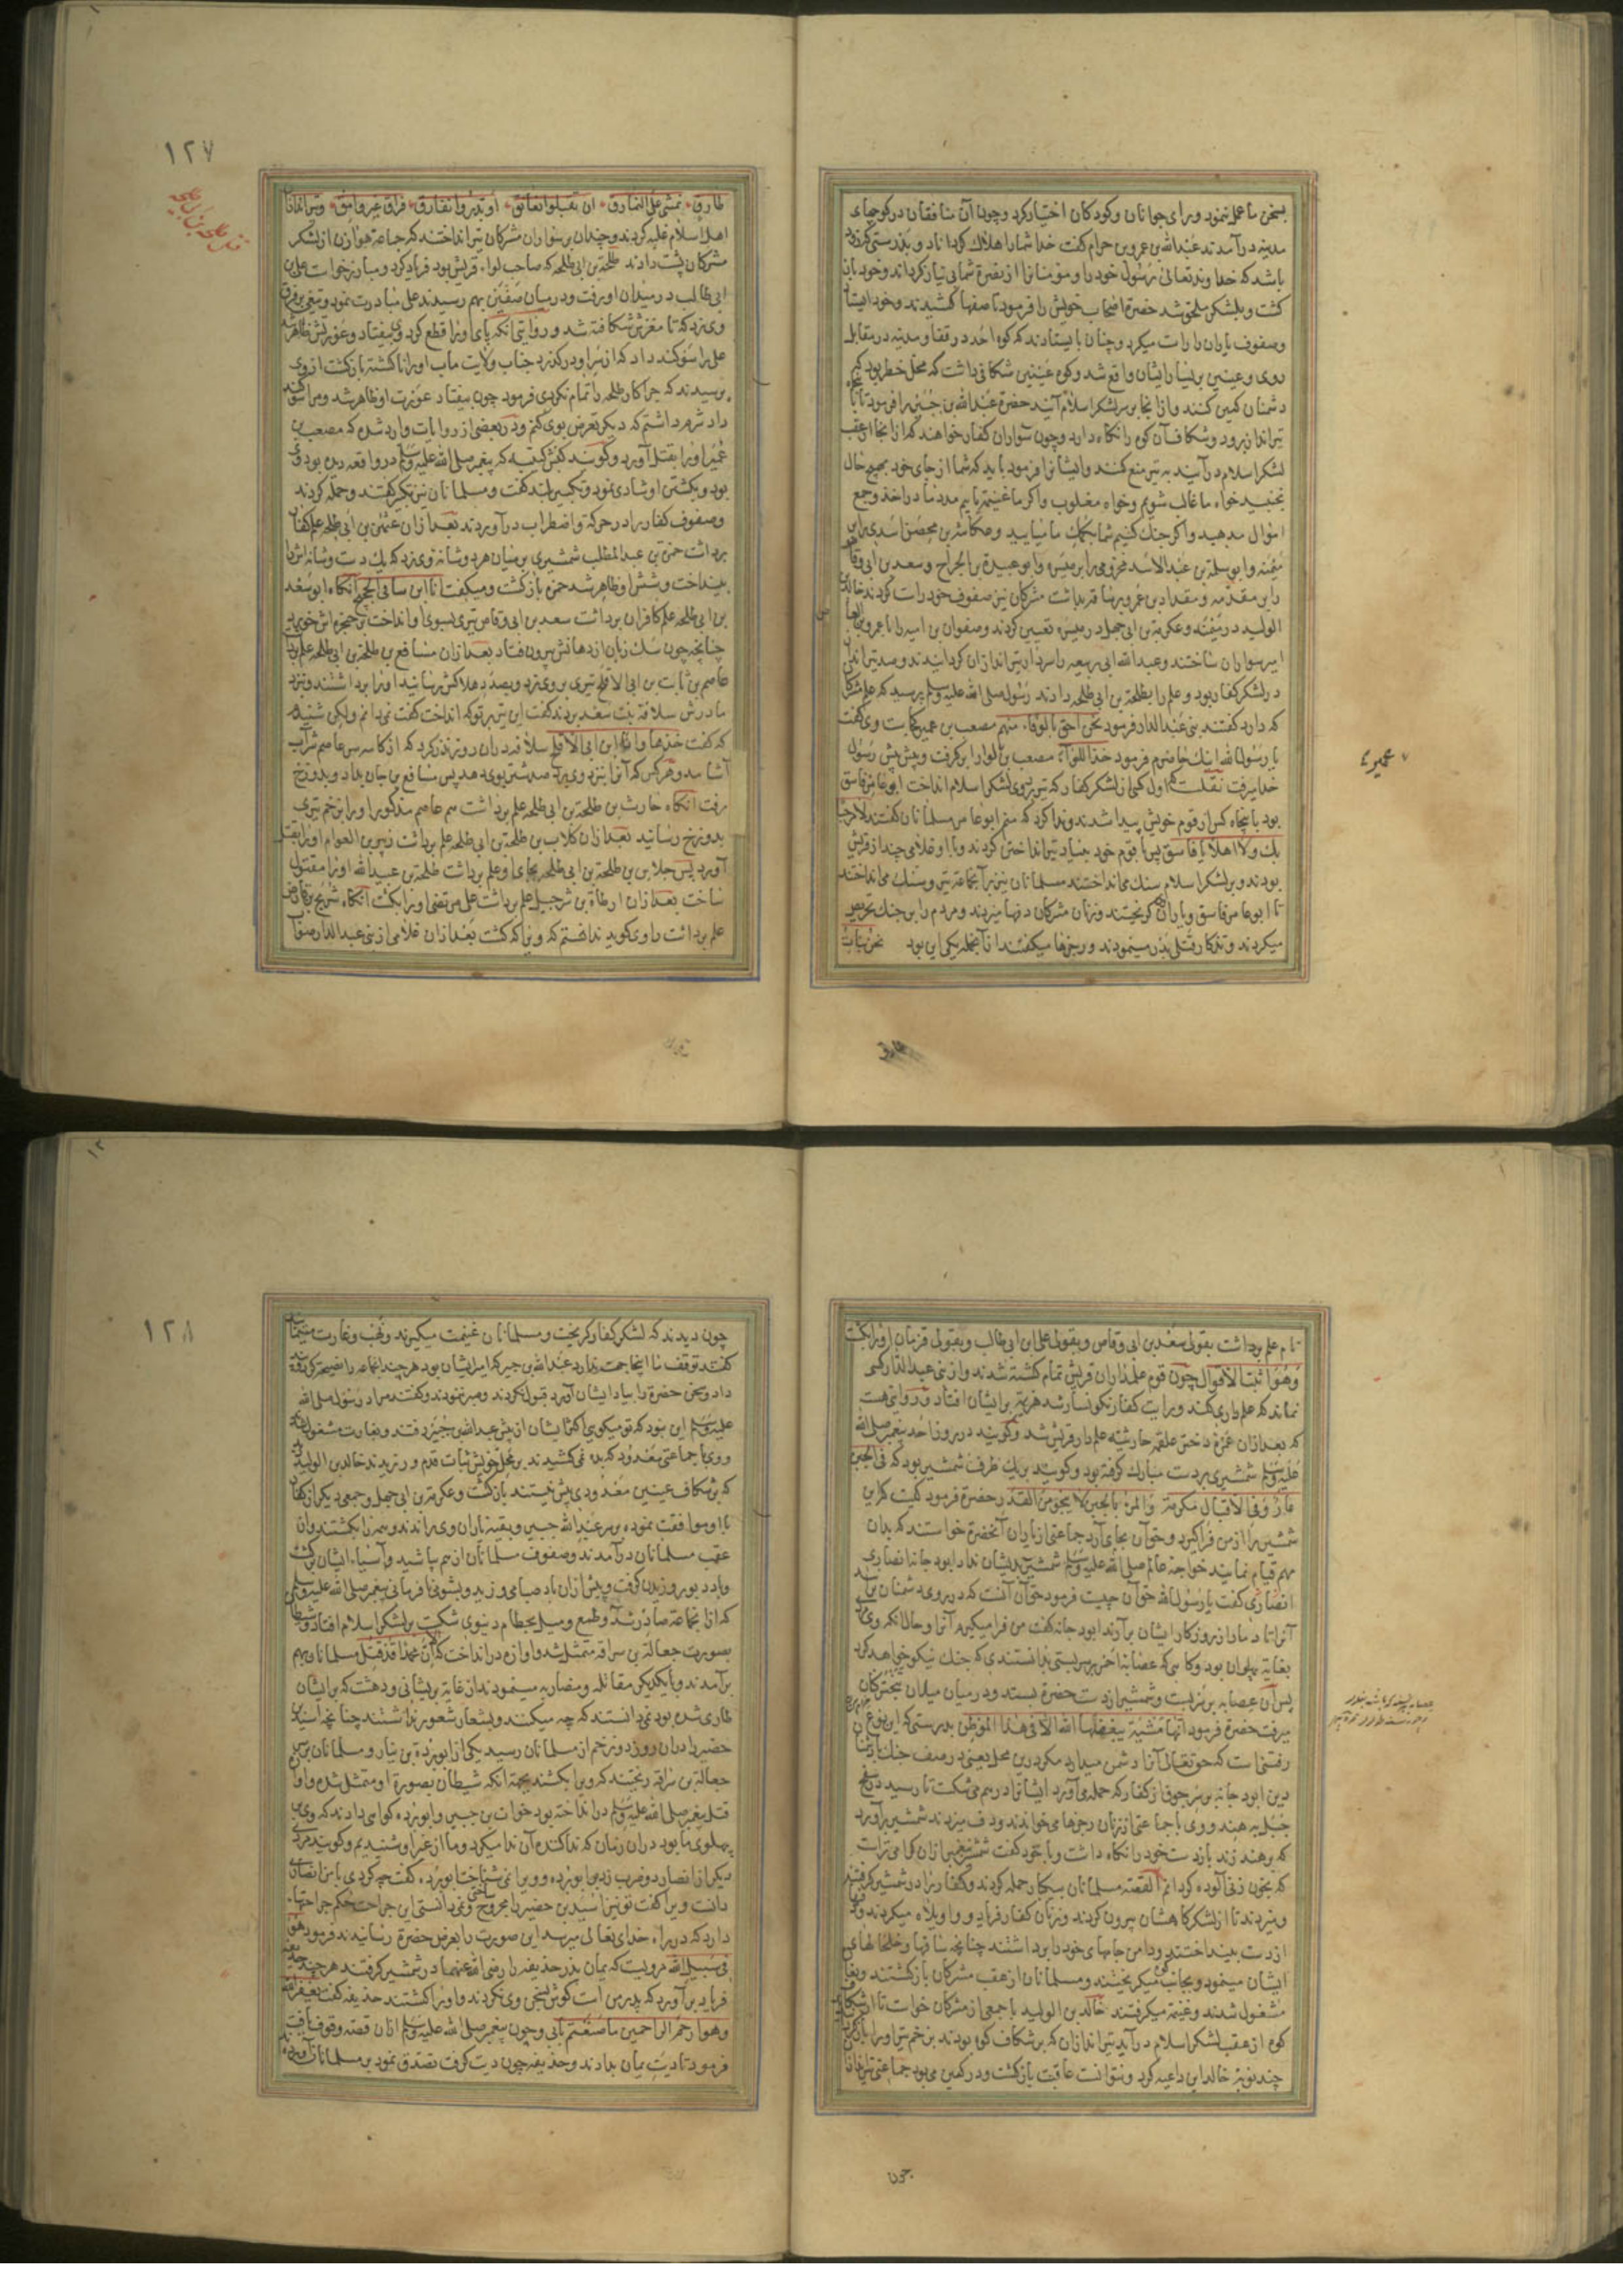 بسخن ما عمل ننمود و رای جوانان و کودکان اختیار کرد و چون آن منافقان در کوچهای
مدینه در آمدند عبدالله بن عمرو بن حرام گفت خدا شما را هلاک کرداناد و بدرستی که زود
باشد که خداوند تعالی رسول خود را و مومنانرا از نصرة شما بی نیاز کرداند و خود باز
کشت و بلشکر ملحق شد حضرة اصحاب خویش را فرمود تا صفها کشیدند و خود ایستاد
و صفوف یاران را راست میکرد و چنان بایستادند که کوه احد در قفا و مدینه در مقابله
روی و عینین بر یسار ایشان واقع شد و کوه عینین شکافی داشت که محل خطر بود که
دشمنان کمین کنند و از انجا بر سر لشکر اسلام آیند حضرة عبدالله بن جبیر را فرمود تا با پنجاه
تیرانداز برود و شکاف آن کوه را نگاه دارد و چون سواران کفار خواهند که از انجا از عقب
لشکر اسلام در آیند به تیر منع کنند و ایشانرا فرمود باید که شما از جای خود بهیچ حال
نجنبید خواه ما غالب شویم و خواه مغلوب و اکر ما غنیمة یابیم مدد ما در اخذ و جمع
اموال مدهید و اکر جنک کنیم شما بکمک ما میایید و عکاشه بن محصن اسدی را بر
میمنه و ابو سلمة بن عبد الاسد مخزومی را بر میسره و ابو عبیدة بن الجراح و سعد بن ابی وقاص
را بر مقدمه و مقداد بن عمرو بر ساقه بداشت مشرکان نیز صفوف خود راست کردند خالد بن
الولید در میمنه و عکرمة بن ابی جهل در میسره تعیین کردند و صفوان بن امیه را یا عمرو بن العاص
امیر سواران ساختند و عبد الله ابی ربیعه را سردار تیراندازان کردانیدند و صد تیرانداز
در لشکر کفار بود و علم را بطلحة بن ابی طلحه دادند رسول صلی الله علیه وسلم پرسید که علم مشرکان
که دارد کفتند بنی عبد الدار فرمود نحن احق بالوفاء منهم مصعب بن عمیر کجاست وی کفت
یا رسول الله اینک حاضرم فرمود خذ اللوآء مصعب بن لوا را بر کرفت و پیش پیش رسول
خدا میرفت نقلست که اول کسی از لشکر کفار که تیر بروی لشکر اسلام انداخت ابو عامر فاسق
بود با پنجاه کس از قوم خویش پیدا شدند و ندا کرد که منم ابو عامر مسلمانان کفتند لا مرحبا
بک ولا اهلا یا فاسق پس با قوم خود بنیاد تیر انداختن کردند و با او غلامی چند از قریش
بودند و بر لشکر اسلام سنک می انداختند مسلمانان نیز بر آن جماعة تیر و سنک می انداختند
تا ابو عامر فاسق و یاران بکریختند و زنان مشرکان دفها میزدند و مردم را بر جنک تحریض
میکردند و تذکار قتلی بدر مینمودند و رجزها میکفتند از آنجمله یکی این بود نحن بنات
عمیر
طارق
۱۲۷
طارق نمشی علی النمارق ان تقبلوا نعانق او تدبروا نفارق فراق غیر وامق و تیراندازان
اهل اسلام غلبه کردند و چندان بر سواران مشرکان تیر انداختند که جماعة هوازن از لشکر
مشرکان پشت دادند طلحة بن ابی طلحه که صاحب لواء قریش بود فریاد کرد و مبارز خواست علی بن
ابی طالب در میدان او رفت و در میان صفین بهم رسیدند علی مبادرت نمود و تیغی بر فرق
وی زد که تا مغزش شکافته شد و روایتی انکه پای او را قطع کرد وی بیفتاد و عورتش ظاهر شد
علی را سوکند داد که از سر او در کذرد جناب ولایت ماب او را ناکشته باز کشت از وی
پرسیدند که چرا کار طلحه را تمام نکردی فرمود چون بیفتاد عورت او ظاهر شد و مرا سوکند
داد شرم داشتم که دیکر تعرض بوی کنم و در بعضی از روایات وارد شده که مصعب بن
عمیر او را بقتل آورد و کویند کبش کتیبه که پیغمبر صلی الله علیه وسلم در واقعه دیده بود وی
بود و بکشتن او شادی نمود و تکبیر بلند کفت و مسلمانان نیز تکبیر کفتند و حمله کردند
و صفوف کفار را در حرکة و اضطراب در آوردند بعد از ان عثمان بن ابی طلحه علم کفار
برداشت حمزة بن عبد المطلب شمشیری بر میان هر دو شانه وی زد که یک دست و شانه اش را
بینداخت و شش او ظاهر شد حمزه باز کشت و میکفت انا ابن ساقی الحجیج آنکاه ابو سعد
بن ابی طلحه علم کافران برداشت سعد بن ابی وقاص تیری بسوی او انداخت بر حنجره اش خورد
چنانچه چون سک زبان از دهانش بیرون فتاد بعد از ان مسافع بن طلحة بن ابی طلحه علم برداشت
عاصم بن ثابت بن ابی الاقلح تیری بر وی زد و بصدد هلاکش رسانید او را برداشتند و نزد
مادرش سلافة بنت سعد بردند کفت این تیر بر تو که انداخت کفت نمی دانم ولیکن شنیدم
که کفت خذها وانا ابن ابی الاقلح سلافه در ان روز نذر کرد که از کاسه سر عاصم شراب
آشامد و هر کس که آنرا بنزد وی برد صد شتر بوی دهد پس مسافع بن جان بداد و بدوزخ
رفت آنکاه حارث بن طلحة بن ابی طلحه علم برداشت هم عاصم مذکور او را بزخم تیری
بدوزخ رسانید بعد از ان کلاب بن طلحة بن ابی طلحه علم برداشت زبیر بن العوام او را بقتل
آورد پس جلاس بن طلحة بن ابی طلحه بجای او علم برداشت طلحة بن عبد الله او را مقتول
ساخت بعد از ان ارطاة بن شرحبیل علم برداشت علی مرتضی او را بکشت آنکاه شریح بن قارض
علم برداشت راوی کوید ندانستم که ویرا که کشت بعد از ان غلامی از بنی عبد الدار صواب
نام علم برداشت بقولی سعد بن ابی وقاص و بقولی علی ابن ابی طالب و بقولی قزمان او را بکشت
وهو اثبت الاقوال چون قوم علمداران قریش تمام کشته شدند و از بنی عبد الدار کسی
نماند که علم داری کند و رایت کفار نکونسار شد هزیمة بر ایشان افتاد و در روایتی هست
که بعد از ان عمره دختر علقمه حارثیه علم دار قریش شد و کویند در روز احد پیغمبر صلی الله
علیه وسلم شمشیری بر دست مبارک کرفته بود و کویند بر یک طرف شمشیر بود که فی الجبن
عار وفی الاقبال مکرمة والمرء بالجبن لا ینجو من القدر حضرة فرمود کیست که این
شمشیر را از من فرا کیرد و حق آن بجای آرد جماعتی از یاران آنحضرة خواستند که بدان
مهم قیام نمایند خواجه عالم صلی الله علیه وسلم شمشیر بدیشان نداد ابو دجانه انصاری
انصاری کفت یا رسول الله حق آن چیست فرمود حق آن آنست که در روی دشمنان بر آید
آنرا تا دمار از روزکار ایشان بر آرند ابو دجانه کفت من فرا میکیرم آنرا و حال انکه وی
بغایة پهلوان بود و کاهی که عصابه احمر بر سر بستی بدانستندی که جنک نیکو خواهد کرد
پس آن عصابه بر سر بست و شمشیر از دست حضرة بستد و در میان میدان تبختر کنان
میرفت حضرة فرمود انها مشیة یبغضها الله الا فی هذا الموطن بدرستی که این نوع
رفتنی است که حق تعالی آنرا دشمن میدارد مکر درین محل یعنی در صف جنک با دشمنان
دین ابو دجانه بر هر جوقی از کفار که حمله می آورد ایشانرا در هم می شکست تا رسید در سفح
جبل به هند و وی با جماعتی از زنان رجزها می خواندند و دف میزدند شمشیر بر آورد
که بر هند زند باز دست خود را نکاه داشت و با خود کفت شمشیر پیغمبر از ان کرامی تراست
که بخون زنی آلوده کردانم القصه مسلمانان بیکبار حمله کردند و کفار را در شمشیر کرفتند
و میزدند تا از لشکر کاهشان بیرون کردند و زنان کفار فریاد و واویلاه میکردند و دفها
از دست بینداختند و دامن جامهای خود را برداشتند چنانچه ساقها و خلخالهای
ایشان مینمود و بجانب کوه میکریختند و مسلمانان از عقب مشرکان بازکشتند و بغارت
مشغول شدند و غنیمة میکرفتند خالد بن الولید با جمعی از مشرکان خواست تا از شکاف
کوه از عقب لشکر اسلام در آید تیراندازان که بر شکاف کوه بودند بزخم تیر او را باز کردانیدند
چند نوبة خالد این داعیه کرد و نتوانست عاقبت باز کشت و در کمین می بود جماعتی تیراندازان
چون
۱۲۸
چون دیدند که لشکر کفار کریخت و مسلمانان غنیمت میکیرند و نهب و غارت مینمایند
کفتند توقف ما اینجا جهت ندارد عبد الله بن جبیر که امیر ایشان بود هر چند انجماعه را نصیحة کرد و پند
داد و سخن حضرة را بیاد ایشان آورد قبول نکردند و صبر ننمودند و کفتند مراد رسول صلی الله
علیه وسلم این نبود که تو میکویی اکثر ایشان از پیش عبد الله بن جبیر رفتند و بغارت مشغول شدند
و وی با جماعتی معدود که بده نمی کشیدند بر محل خویش ثبات قدم ورزیدند خالد بن الولید دید
که بر شکاف عینین معدودی بیش نیستند بازکشت و عکرمة بن ابی جهل و جمعی دیکر از کفار
با او موافقت نموده بر سر عبد الله جبیر و بقیه یاران وی راندند و همه را بکشتند و از
عقب مسلمانان در آمدند و صفوف مسلمانان از هم پاشید و آسیاء ایشان برکشت
و باد دبور وزیدن کرفت و پیش ازان باد صبا می وزید و بشومی نافرمانی پیغمبر صلی الله علیه وسلم
که از ان جماعة صادر شد و طمع و میل بحطام دنیوی شکست بر لشکر اسلام افتاد و شیطان
بصورت جعالة بن سراقه متمثل شد و اوازه در انداخت که ان محمدا قد قتل مسلمانان بهم
برآمدند و با یکدیکر مقاتله و مضاربه مینمودند از غایة پریشانی و دهشت که بر ایشان
طاری شده بود نمی دانستند که چه میکنند و بشعار شعور نداشتند چنانچه اسید بن
حضیر را در ان روز دو زخم از مسلمانان رسید یکی از ابو برده بن نیار و مسلمانان بر سر
جعالة بن سراقه رفتند که ویرا بکشند بجهة انکه شیطان بصورة او متمثل شده و اوازه
قتل پیغمبر صلی الله علیه وسلم در انداخته بود خوات بن جبیر و ابو برده کواهی دادند که وی در
پهلوی ما بود در ان زمان که ندا کننده آن ندا میکرد و ما از غیر او شنیدیم و کویند مردی
دیکر از انصار دو ضرب زد بر ابو برده و ویرا نمی شناخت ابو برده کفت چه کردی با من انصاری
دانست ویرا کفت تو نیز اسید بن حضیر را مجروح ساختی و نمی دانستی این جراحت حکم جراحتها
دارد که در راه خدای تعالی میرسد این صورت را بعرض حضرة رسانیدند فرمود هو
فی سبیل الله مرویست که یمان پدر حذیفه را رضی الله عنهما در شمشیر کرفتند هر چند حذیفه
فریاد بر آورد که پدر من است کوش بسخن وی نکردند و او را کشتند حذیفه کفت یغفر الله لکم
وهو ارحم الراحمین ما صنعتم بابی و چون پیغمبر صلی الله علیه وسلم از ان قصه وقوف یافت
فرمود تا دیت یمان بدادند و حذیفه چون دیت کرفت تصدق نمود بر مسلمانان